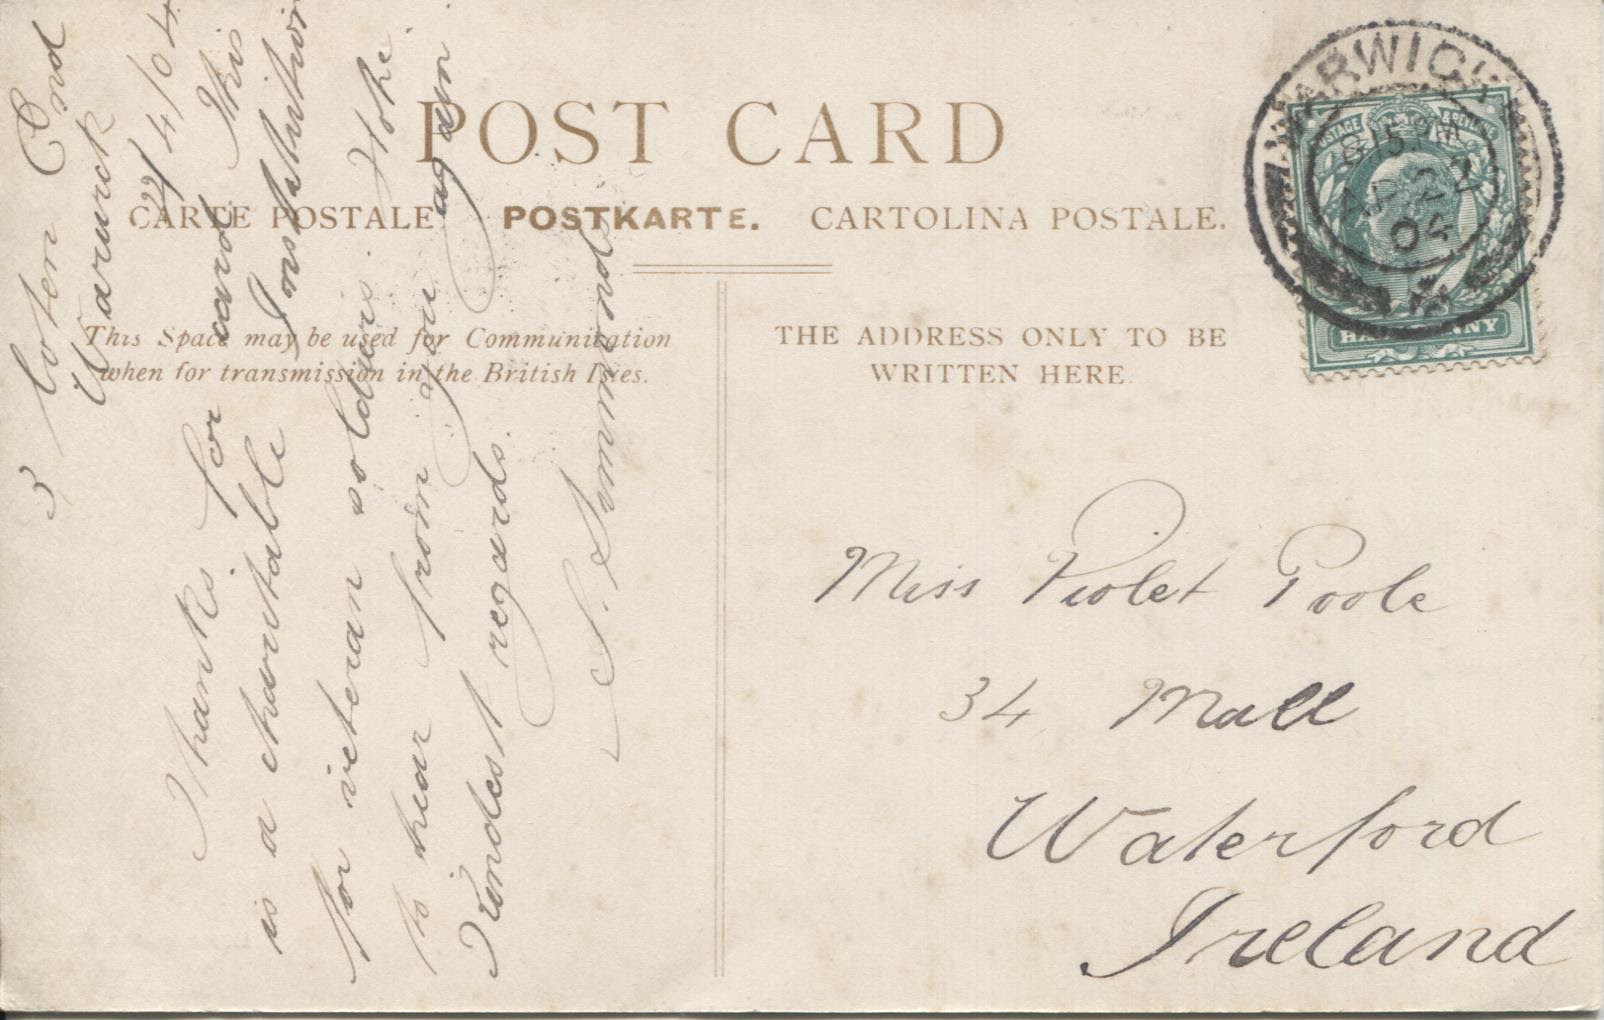 POST CARD
CARTE POSTALE POSTKARTE. CARTOLINA POSTALE.
This Space may be used for Communication
when for transmission in the British Isles.
THE ADDRESS ONLY TO BE
WRITTEN HERE.
WARWICK
8 15 PM
AP 22
04
POSTAGE & REVENUE
HALFPENNY
3 Coten End
Warwick
22/4/04
Thanks for card This
is a charitable Institution
for veteran soldiers. Hope
to hear from you again
Kindest regards.
S. Simmonds
Miss Violet Poole
34 Mall
Waterford
Ireland